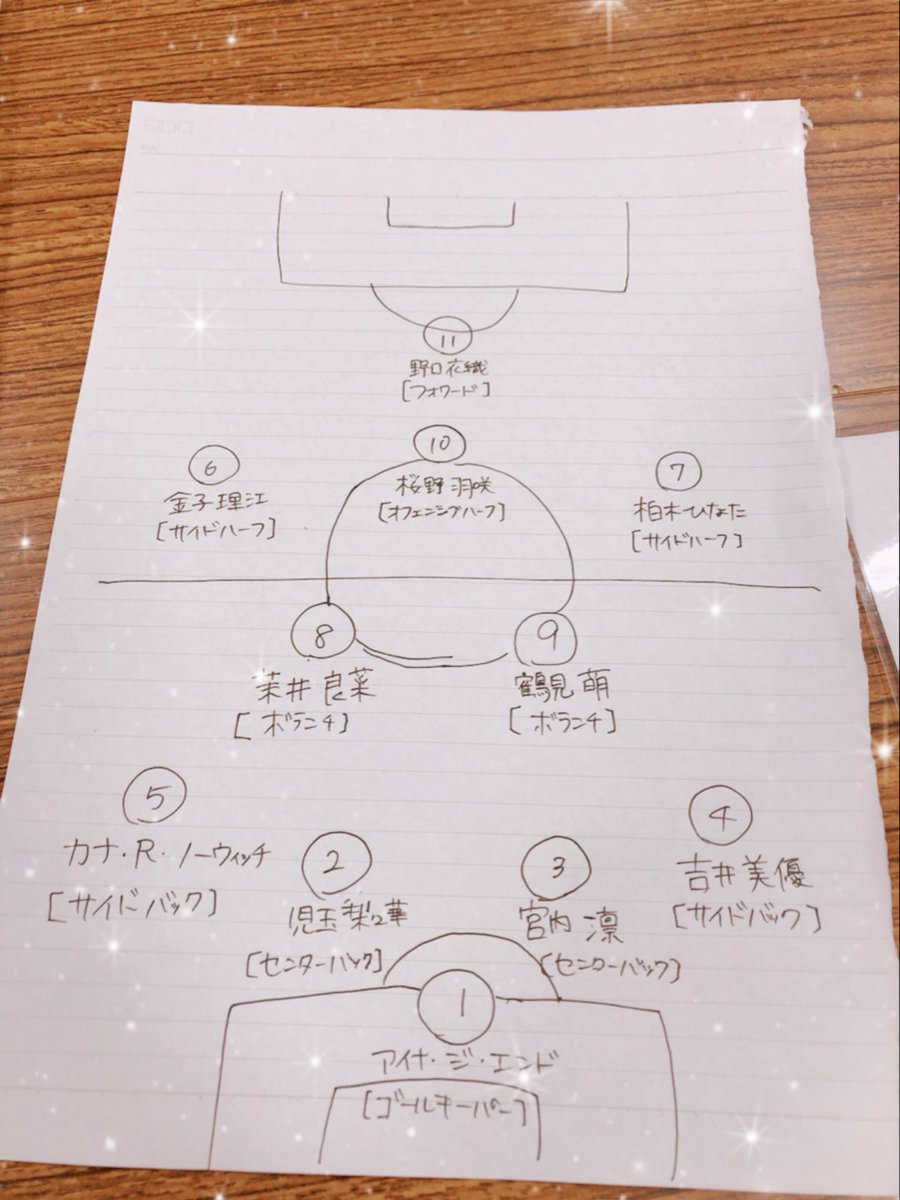 Date
11
野口衣織
[フォワード]
10
桜野羽咲
[オフェンシブハーフ]
6
金子理江
[サイドハーフ]
7
柏木ひなた
[サイドハーフ]
8
茉井良菜
[ボランチ]
9
鶴見萌
[ボランチ]
5
カナ・R・ノーウィッチ
[サイドバック]
2
児玉梨華
[センターバック]
3
宮内凛
[センターバック]
4
吉井美優
[サイドバック]
1
アイナ・ジ・エンド
[ゴールキーパー]